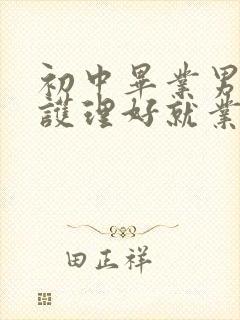 初中畢業男
護理好就業
田正祥